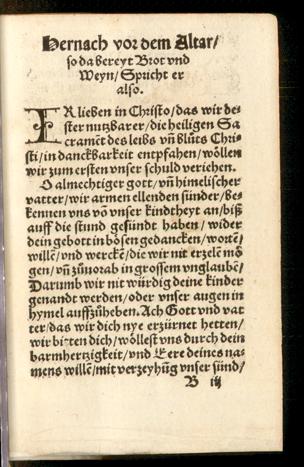 Hernach vor dem Altar/
so da bereyt Brot vnd
Weyn/ Spricht er
also.
IR lieben in Christo/ das wir de-
ster nutzbarer/ die heiligen Sa
cramēt des leibs vñ blůts Chri-
sti/ in danckbarkeit entpfahen/ wöllen
wir zum ersten vnser schuld veriehen.
O almechtiger gott/ vñ himelischer
vatter/ wir armen ellenden sünder/ be-
kennen vns vō vnser kindtheyt an/ biß
auff die stund gesündt haben/ wider
dein gebott in bösen gedancken/ wortē/
willē/ vnd werckē/ die wir nit erzelē mö
gen/ vñ zůuorab in grossem vnglaubē/
Darumb wir nit würdig deine kinder
genandt werden/ oder vnser augen in
hymel auffzůheben. Ach Gott vnd vat
ter/ das wir dich nye erzürnet hetten/
wir bitten dich/ wöllest vns durch dein
barmhertzigkeit/ vnd Eere deines na-
mens willē/ mit verzeyhūg vnser sünd/
B iij